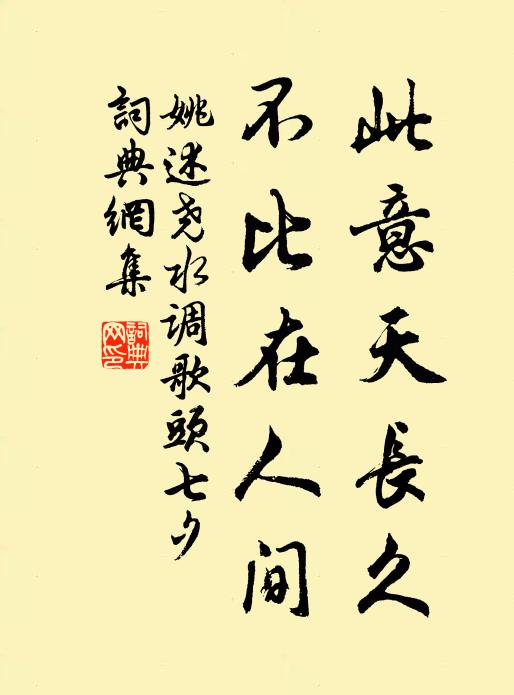 此意天長久
不比在人间
姚述尧水调歌頭七夕
詞典網集
詞典网印